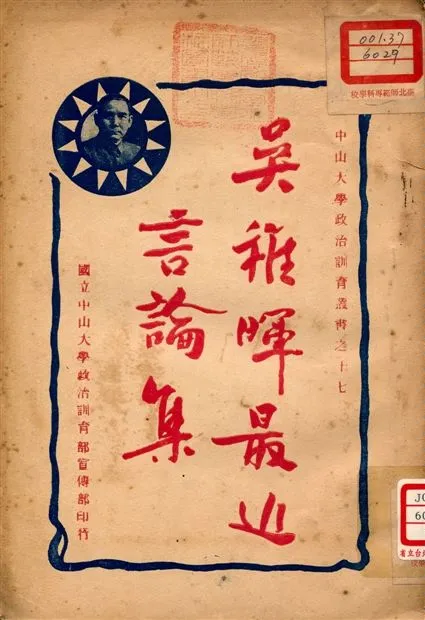 001.37
6029
校學科專範師北臺
中山大學政治訓育叢書之十七
吳稚暉最近
言論集
國立中山大學政治訓育部宣傳部印行
JO
60
省立台北